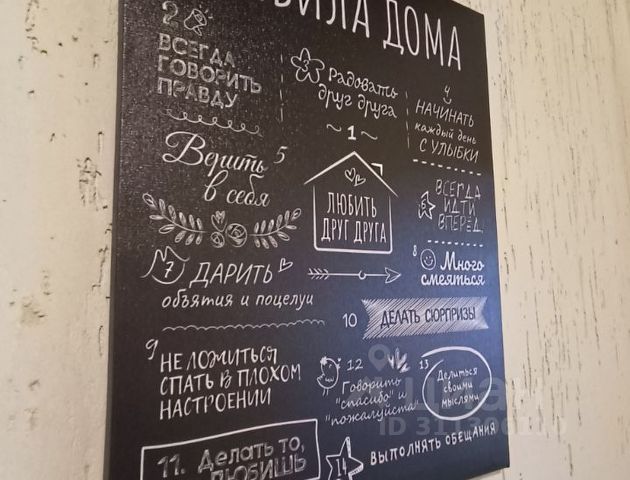 ДОМА
2
ВСЕГДА
ГОВОРИТЬ
ПРАВДУ
3
Радовать
друг друга
4
НАЧИНАТЬ
каждый день
С УЛЫБКИ
~ 1 ~
ЛЮБИТЬ
ДРУГ ДРУГА
Верить 5
в себя
6
ВСЕГДА
ИДТИ
ВПЕРЁД!
7 ДАРИТЬ
объятия и поцелуи
8
Много
смеяться
9
НЕ ЛОЖИТЬСЯ
СПАТЬ В ПЛОХОМ
НАСТРОЕНИИ
10 ДЕЛАТЬ СЮРПРИЗЫ
12
Говорить
"спасибо" и
"пожалуйста"
13
Делиться
своими
мыслями
11. Делать то,
ЛЮБИШЬ
14 ВЫПОЛНЯТЬ ОБЕЩАНИЯ